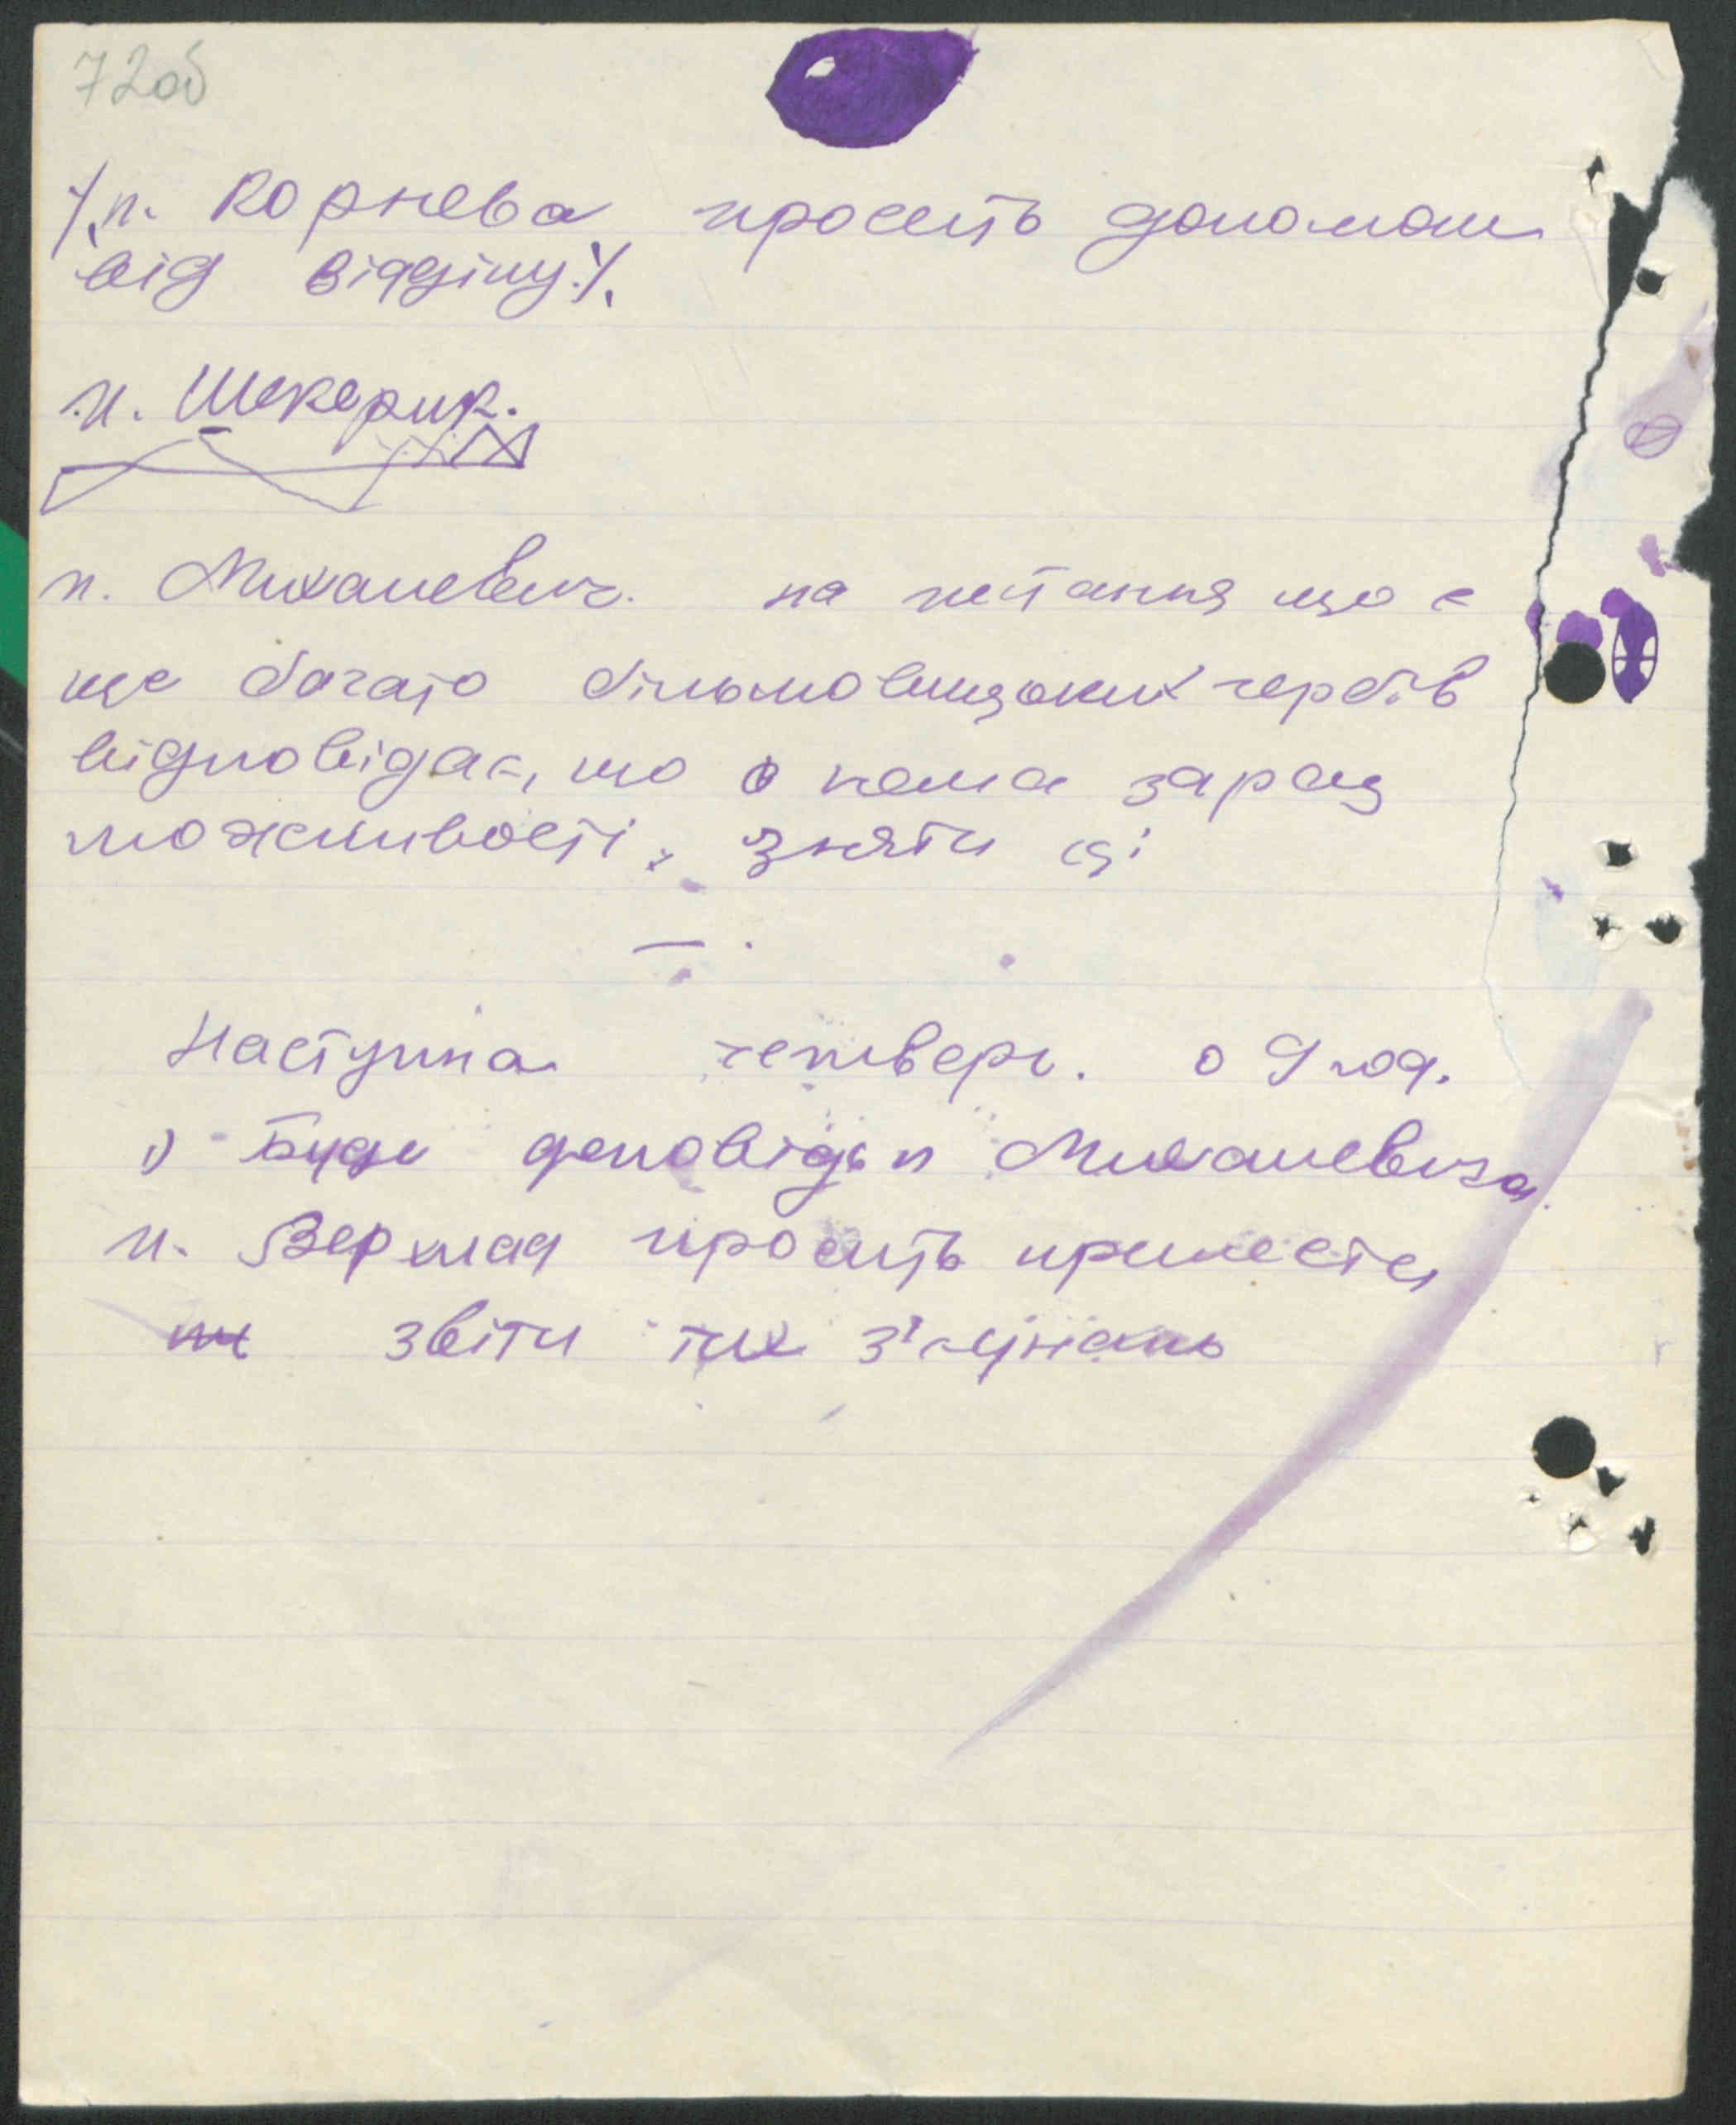 72об
/.п. Корнева просить допомоги
від відділу./.
п. Шекерик.
п. Михалевич. на питання що є
ще богато більшовицьких гербів
відповідає, що нема зараз
можливості, зняти ці
Наступна четверг. о 9 год.
1) Буде доповідь п Михалевича
п. Вермад просить принести
звіти тих з'єднань